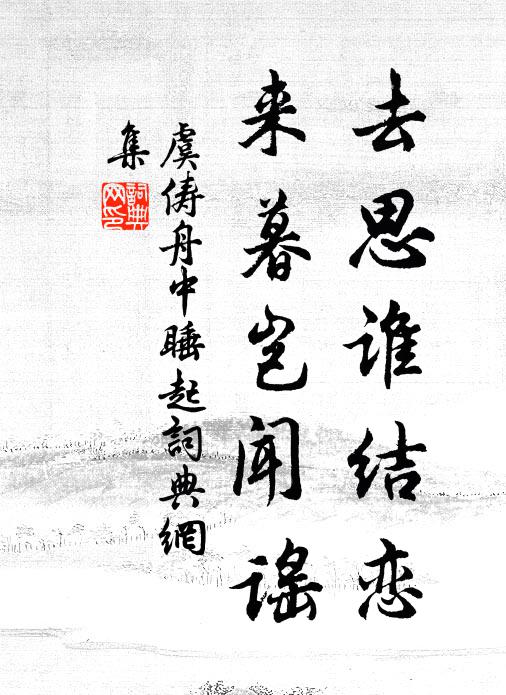 去思谁结恋
来暮岂闻谣
虞俦舟中睡起詞典網
集
詞典网印